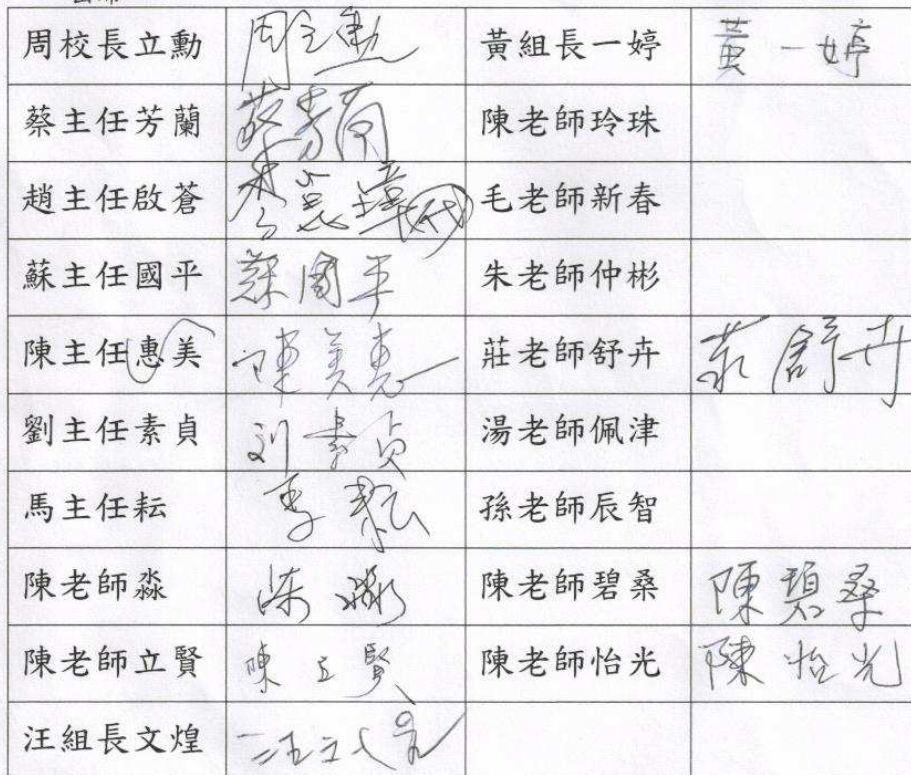 周校長立勳 周立勳 黃組長一婷 黃一婷
蔡主任芳蘭 蔡芳蘭 陳老師玲珠
趙主任啟蒼 毛老師新春
蘇主任國平 蘇國平 朱老師仲彬
陳主任惠美 陳美惠 莊老師舒卉 莊舒卉
劉主任素貞 刘素貞 湯老師佩津
馬主任耘 孫老師辰智
陳老師淼 陳淼 陳老師碧桑 陳碧桑
陳老師立賢 陳立賢 陳老師怡光 陳怡光
汪組長文煌 汪文煌